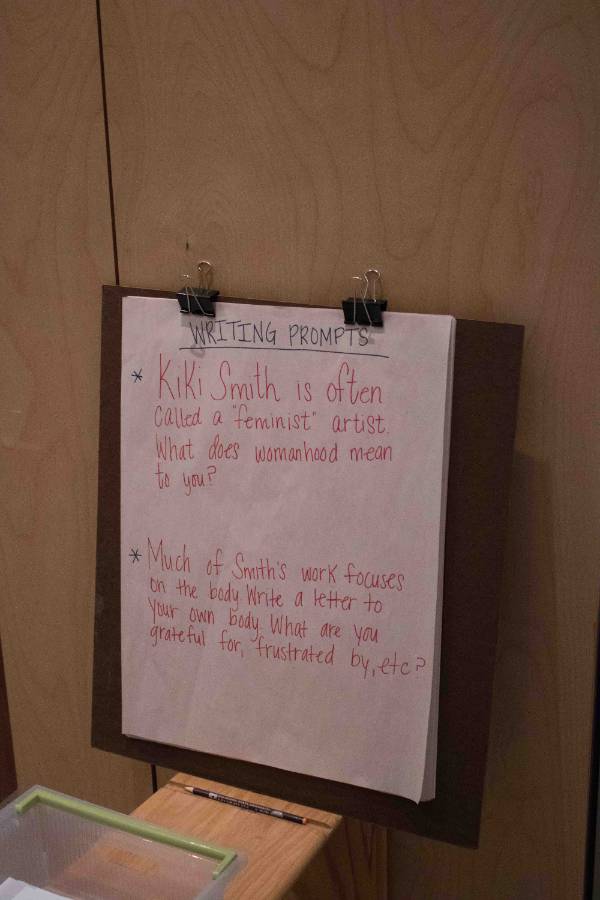 WRITING PROMPTS
* KiKi Smith is often
called a "feminist" artist.
What does womanhood mean
to you?
* Much of Smith's work focuses
on the body. Write a letter to
your own body. What are you
grateful for, frustrated by, etc?